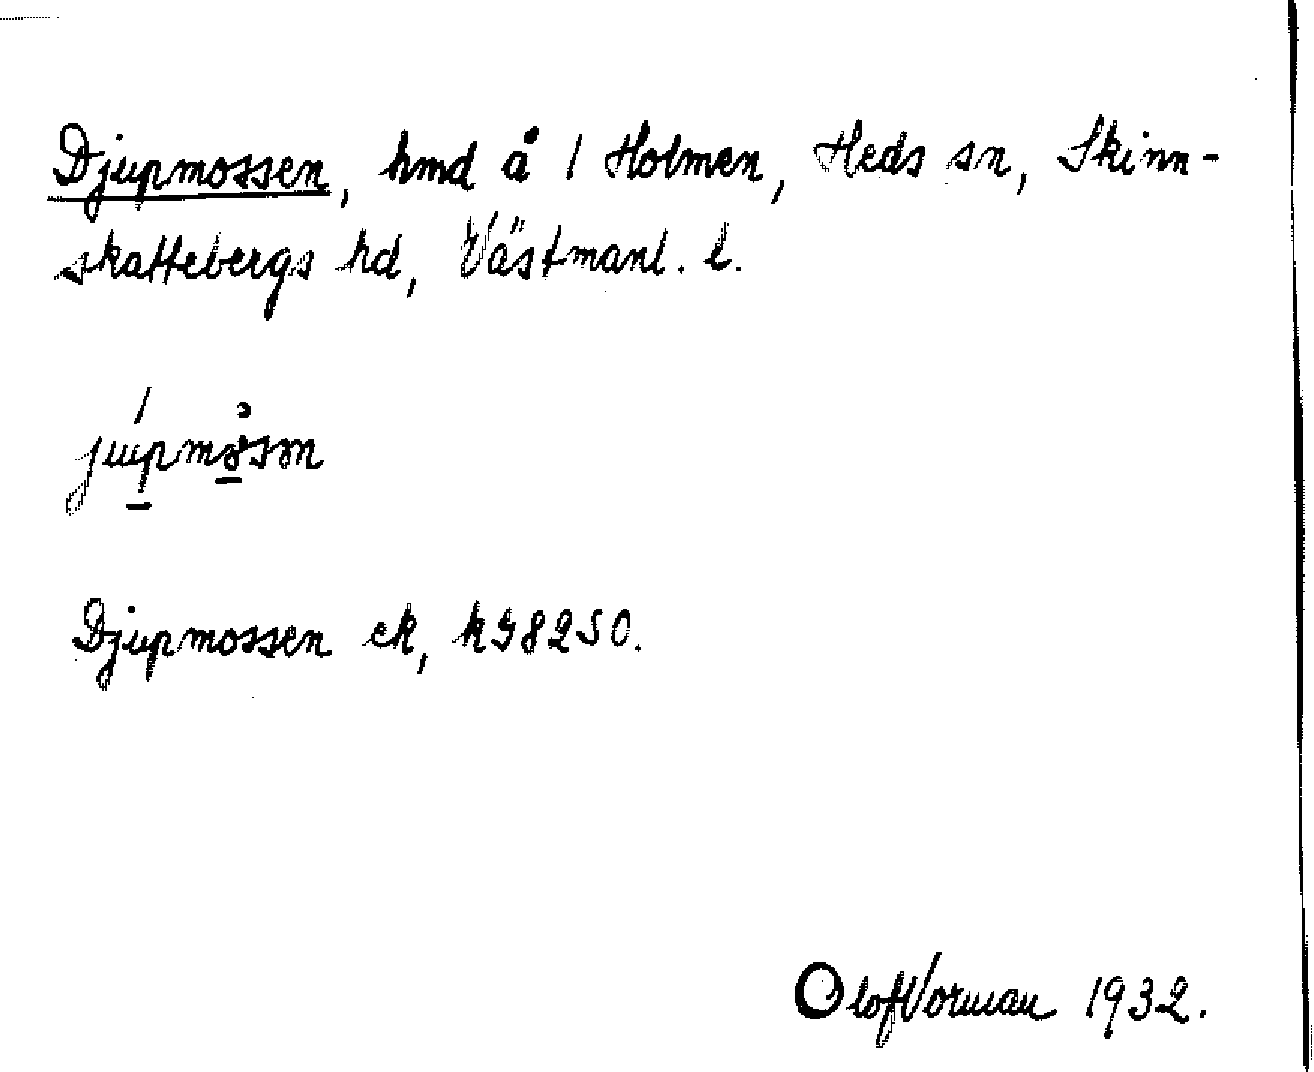 Djupmossen, hmd å 1 Holmen, Heds sn, Skinn-
skattebergs hd, Västmanl. l.
Djupmossen ek, k98250.
Olof Vorman 1932.